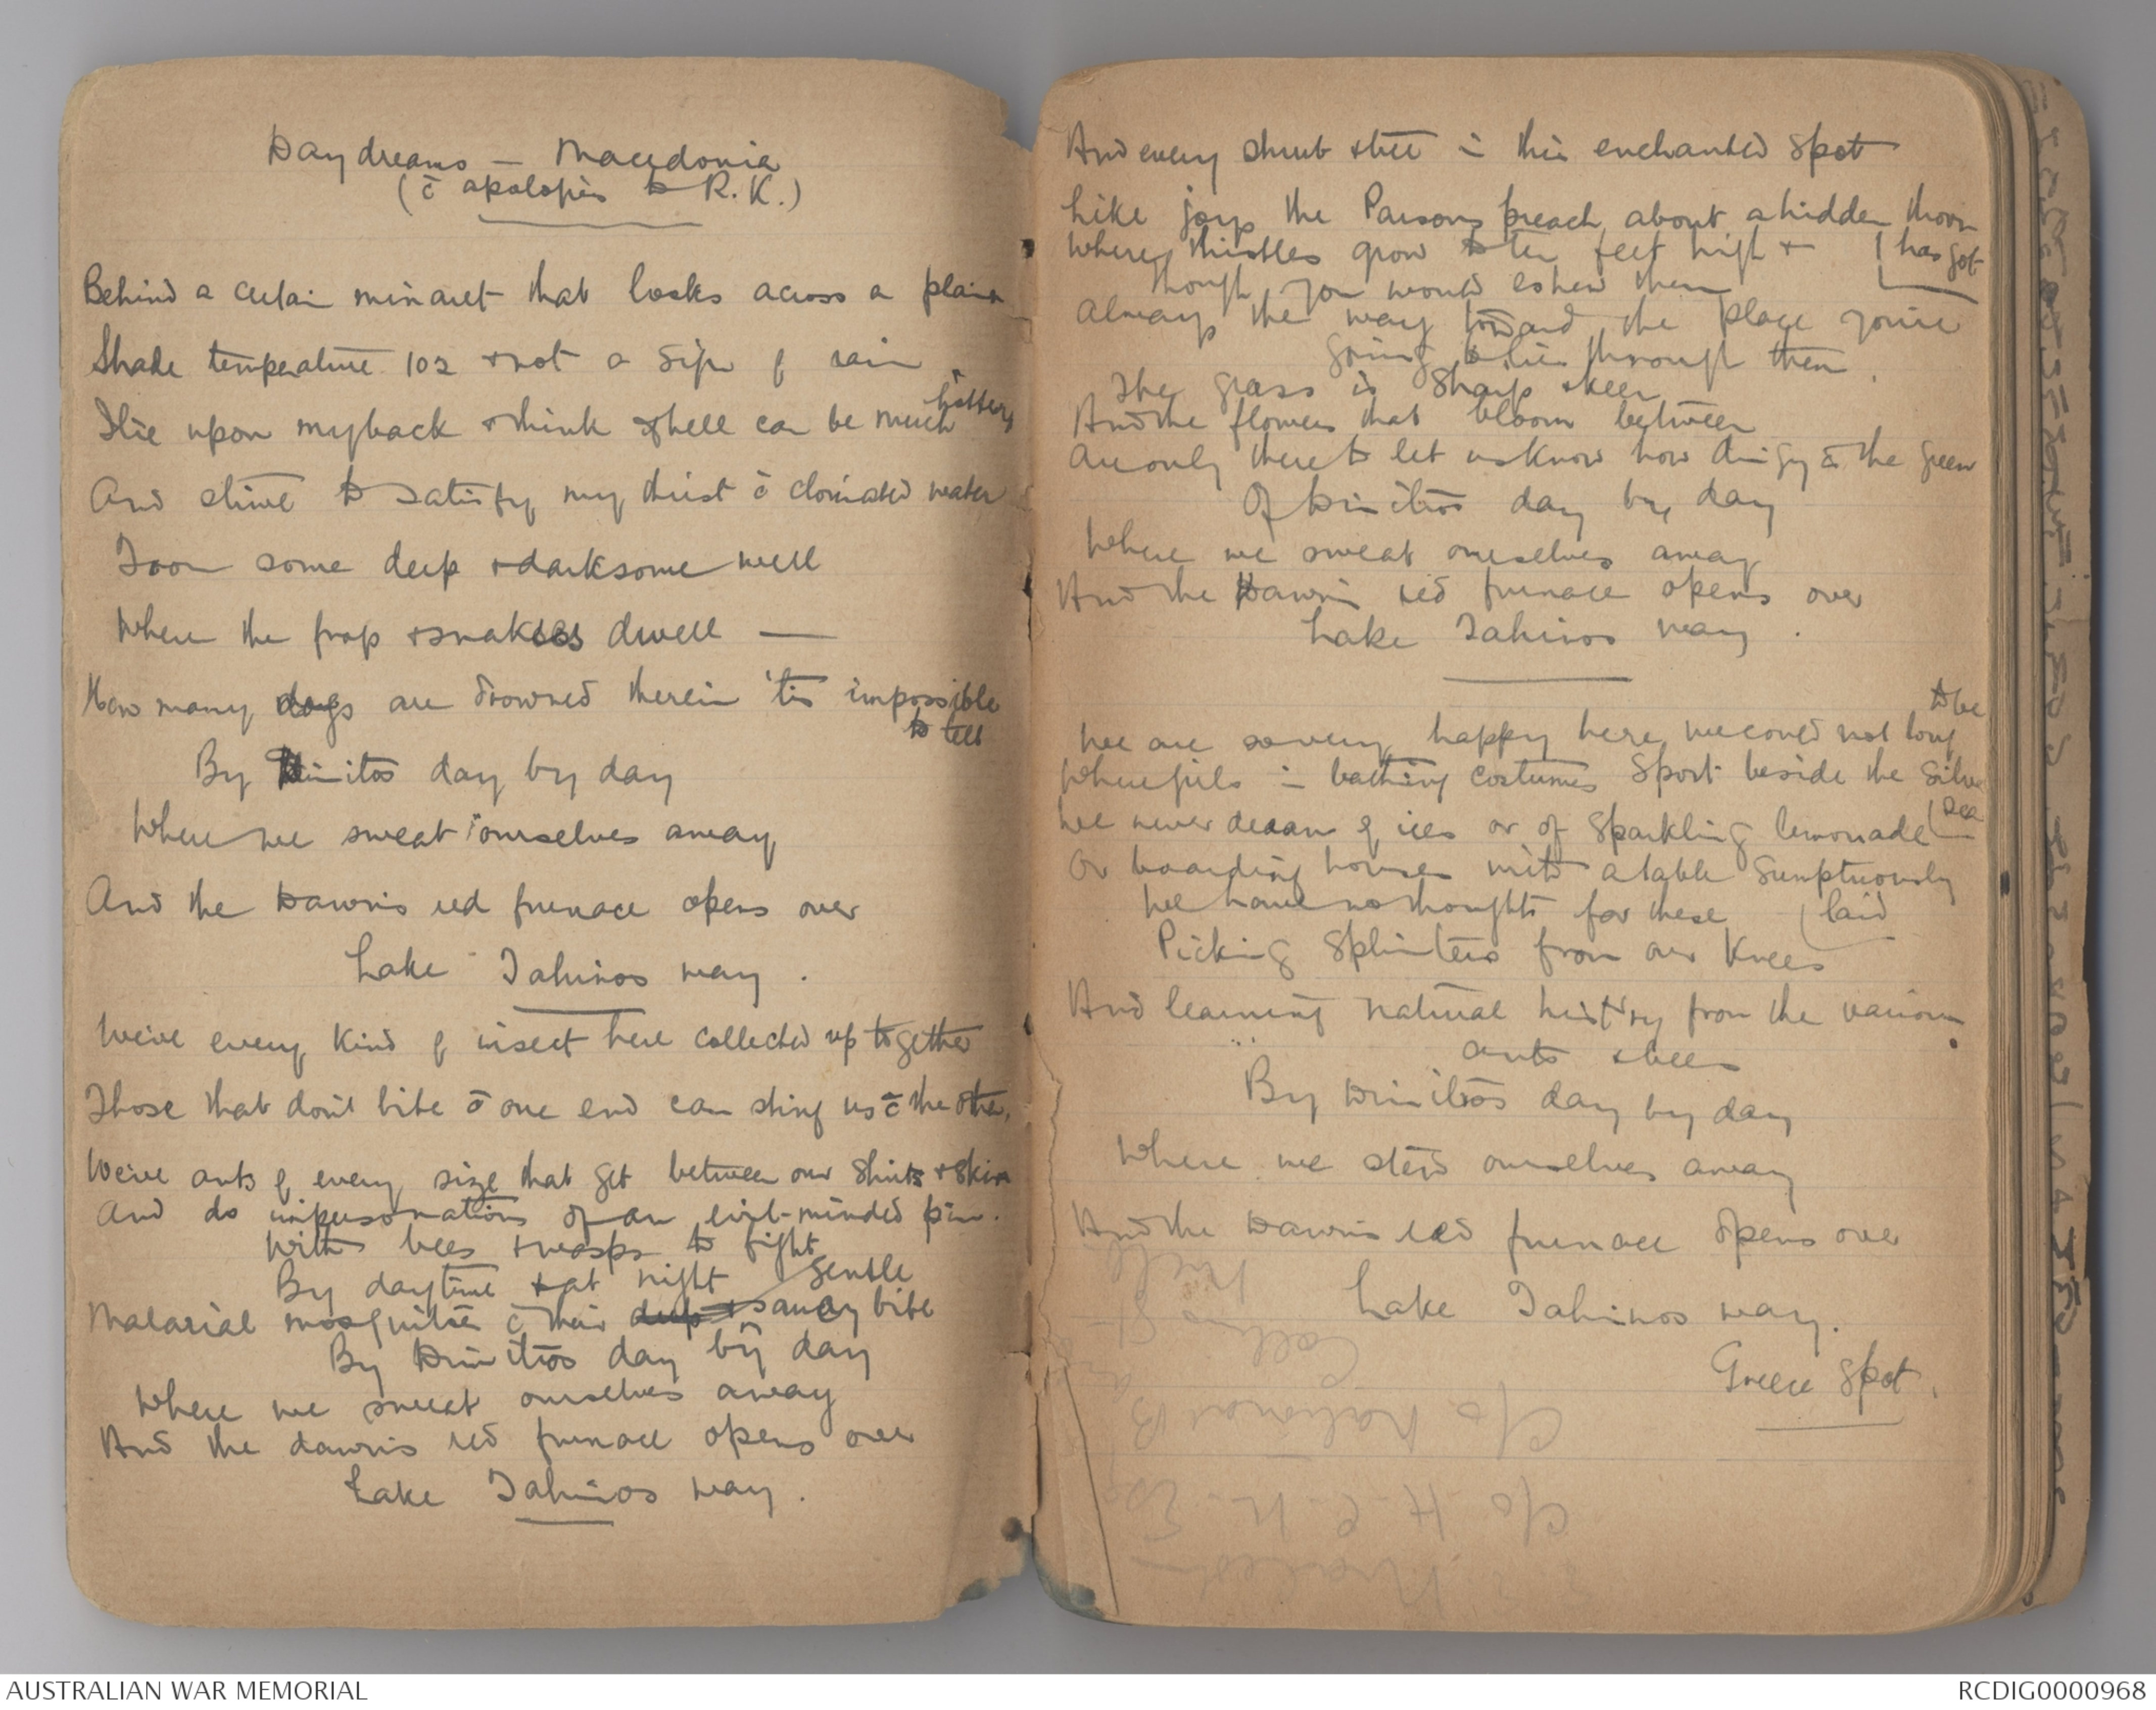 Daydreams — Macedonia
(c̄ apologies to R.K.)
Behind a certain minaret that looks across a plain
Shade temperature 102 & not a sign of rain
I lie upon my back & think if hell can be much hotter
And strive to satisfy my thirst c̄ clorinated water
From some deep & darksome well
Where the frogs & snakes dwell —
How many dogs are drowned therein 'tis impossible
to tell
By Dimitos day by day
Where we sweat ourselves away
And the Dawn's red furnace opens over
Lake Tahinos way.
We've every kind of insect here collected up together
Those that don't bite c̄ one end can sting us c̄ the other,
We've ants of every size that get between our shirts & skin
And do impersonations of an evil-minded pin.
With bees & wasps to fight
By daytime & at night
gentle
Malarial mosquitoes c̄ their deep & sandy bite
By Dimitros day by day
Where we sweat ourselves away
And the dawn's red furnace opens over
Lake Tahinos way.
And every shrub & tree in this enchanted spot
Like joys the Parsons preach about a hidden thorn
has got
Where thistles grow to ten feet high &
though you would eshew them
Always the way toward the place you're
going to lies through them.
The grass is sharp & keen
And the flowers that bloom between
Are only there to let us know how dingy is the green
Of Dimitros day by day
Where we sweat ourselves away
And the Dawn's red furnace opens over
Lake Tahinos way.
We are so very happy here we could not long
to be
Where girls in bathing costumes sport beside the silver
sea
We never dream of ices or of sparkling lemonade
Or boarding houses with a table sumptuously
laid
We have no thoughts for these
Picking splinters from our knees
And learning natural history from the various
ants & bees
By Dimitros day by day
Where we stew ourselves away
And the Dawn's red furnace opens over
Lake Tahinos way.
Greece Spot.
c/o National B
Collins St
c/o H. C. N. Esq
AUSTRALIAN WAR MEMORIAL
RCDIG0000968